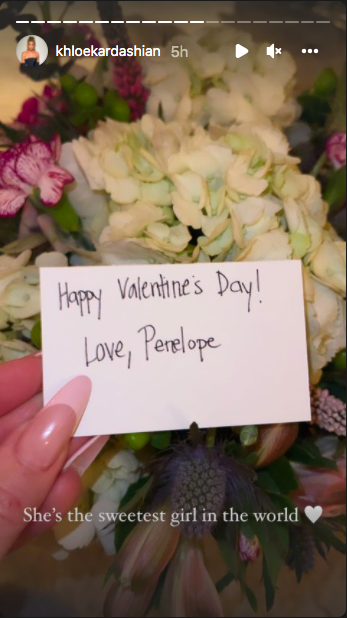 khloekardashian 5h
Happy Valentine's Day!
Love, Penelope
She's the sweetest girl in the world 🤍